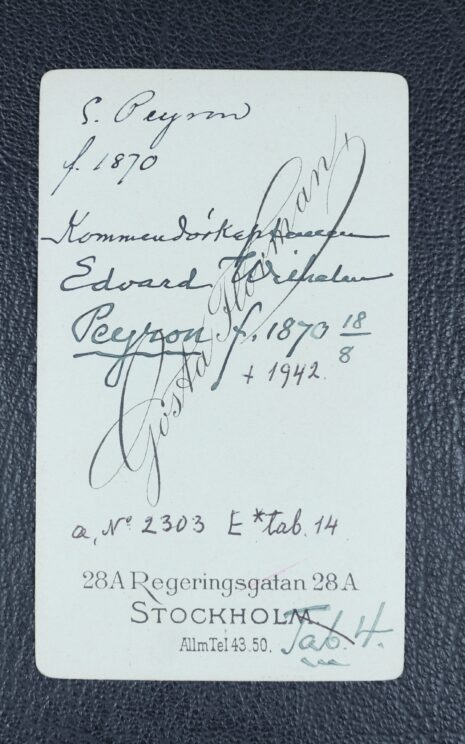 E. Peyron
f. 1870
Kommendörkaptenen
Edvard Wilhelm
Peyron f. 1870 18/8
+ 1942.
Gösta Florman
a, No 2303 E * tab. 14
28A Regeringsgatan 28A
STOCKHOLM.
AllmTel 43.50.
Tab. 4.